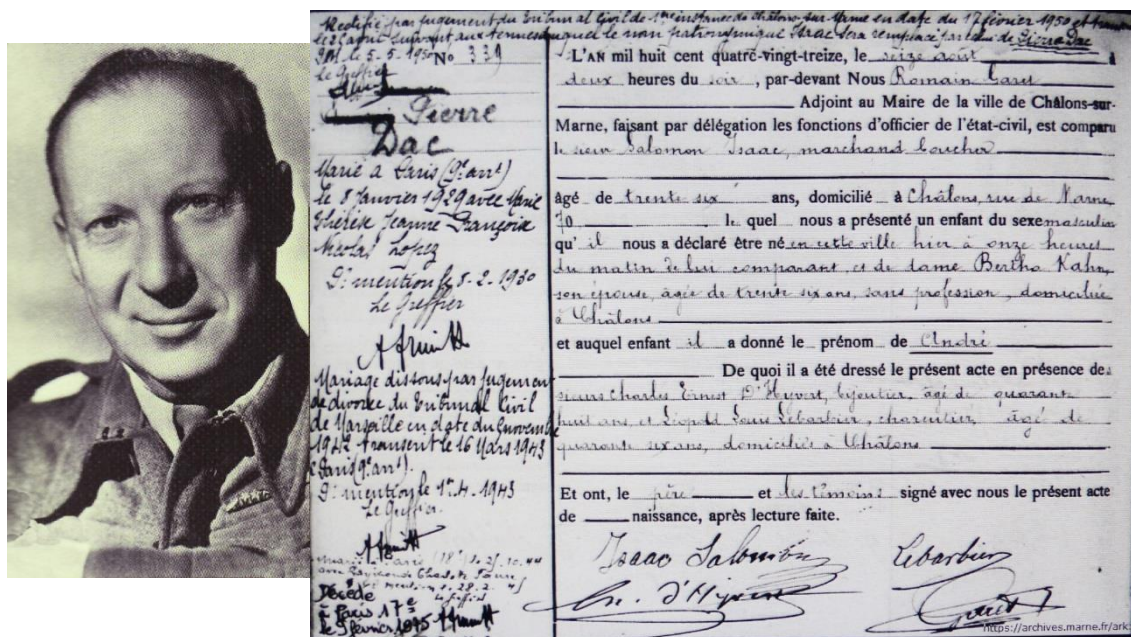 Rectifié par jugement du Tribunal Civil de 1ère instance de Châlons-sur-Marne en date du 17 février 1950 et
suivant aux termes duquel le nom patronymique Isaac sera remplacé par celui de Pierre-Dac
5-5-1950
Le Greffier
Pierre
Dac
Marié à Paris (9e arrt)
le 8 Janvier 1929 avec Marie
Thérèse Jeanne Françoise
Nicolas Lopez
Dt mention le 8-2-1930
Le Greffier
Mariage dissous par jugement
de divorce du Tribunal Civil
de Marseille en date du novembre
1942 transcrit le 16 Mars 1943
à Paris (9e arrt).
Dt mention le 1er-4-1943
Le Greffier.
Décédé
à Paris 17e
le 9 février
No 339
L'AN mil huit cent quatre-vingt-treize, le seize août à
deux heures du soir, par-devant Nous Romain
Adjoint au Maire de la ville de Châlons-sur-
Marne, faisant par délégation les fonctions d'officier de l'état-civil, est comparu
le sieur Salomon Isaac, marchand boucher
âgé de trente six ans, domicilié à Châlons, rue de Marne,
70 le quel nous a présenté un enfant du sexe masculin
qu'il nous a déclaré être né en cette ville hier à onze heures
du matin de lui comparant, et de dame Bertha Kahn,
son épouse, âgée de trente six ans, sans profession, domiciliée
à Châlons
et auquel enfant il a donné le prénom de André
De quoi il a été dressé le présent acte en présence des
sieurs Charles Ernest D'Hyvert, bijoutier, âgé de quarante
huit ans, et Léopold Louis Lebarbier, charcutier, âgé de
quarante six ans, domiciliés à Châlons
Et ont, le père et les témoins signé avec nous le présent acte
de naissance, après lecture faite.
Isaac Salomon Lebarbier
D'Hyvert
https://archives.marne.fr/ark